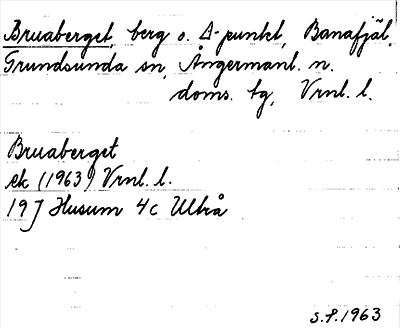 Bruaberget, berg o. Δ-punkt, Banafjäl,
Grundsunda sn, Ångermanl. n.
doms. tg, Vrnl. l.
Bruaberget
ek (1963) Vrnl. l.
19J Husum 4c Ulvå
S.P. 1963